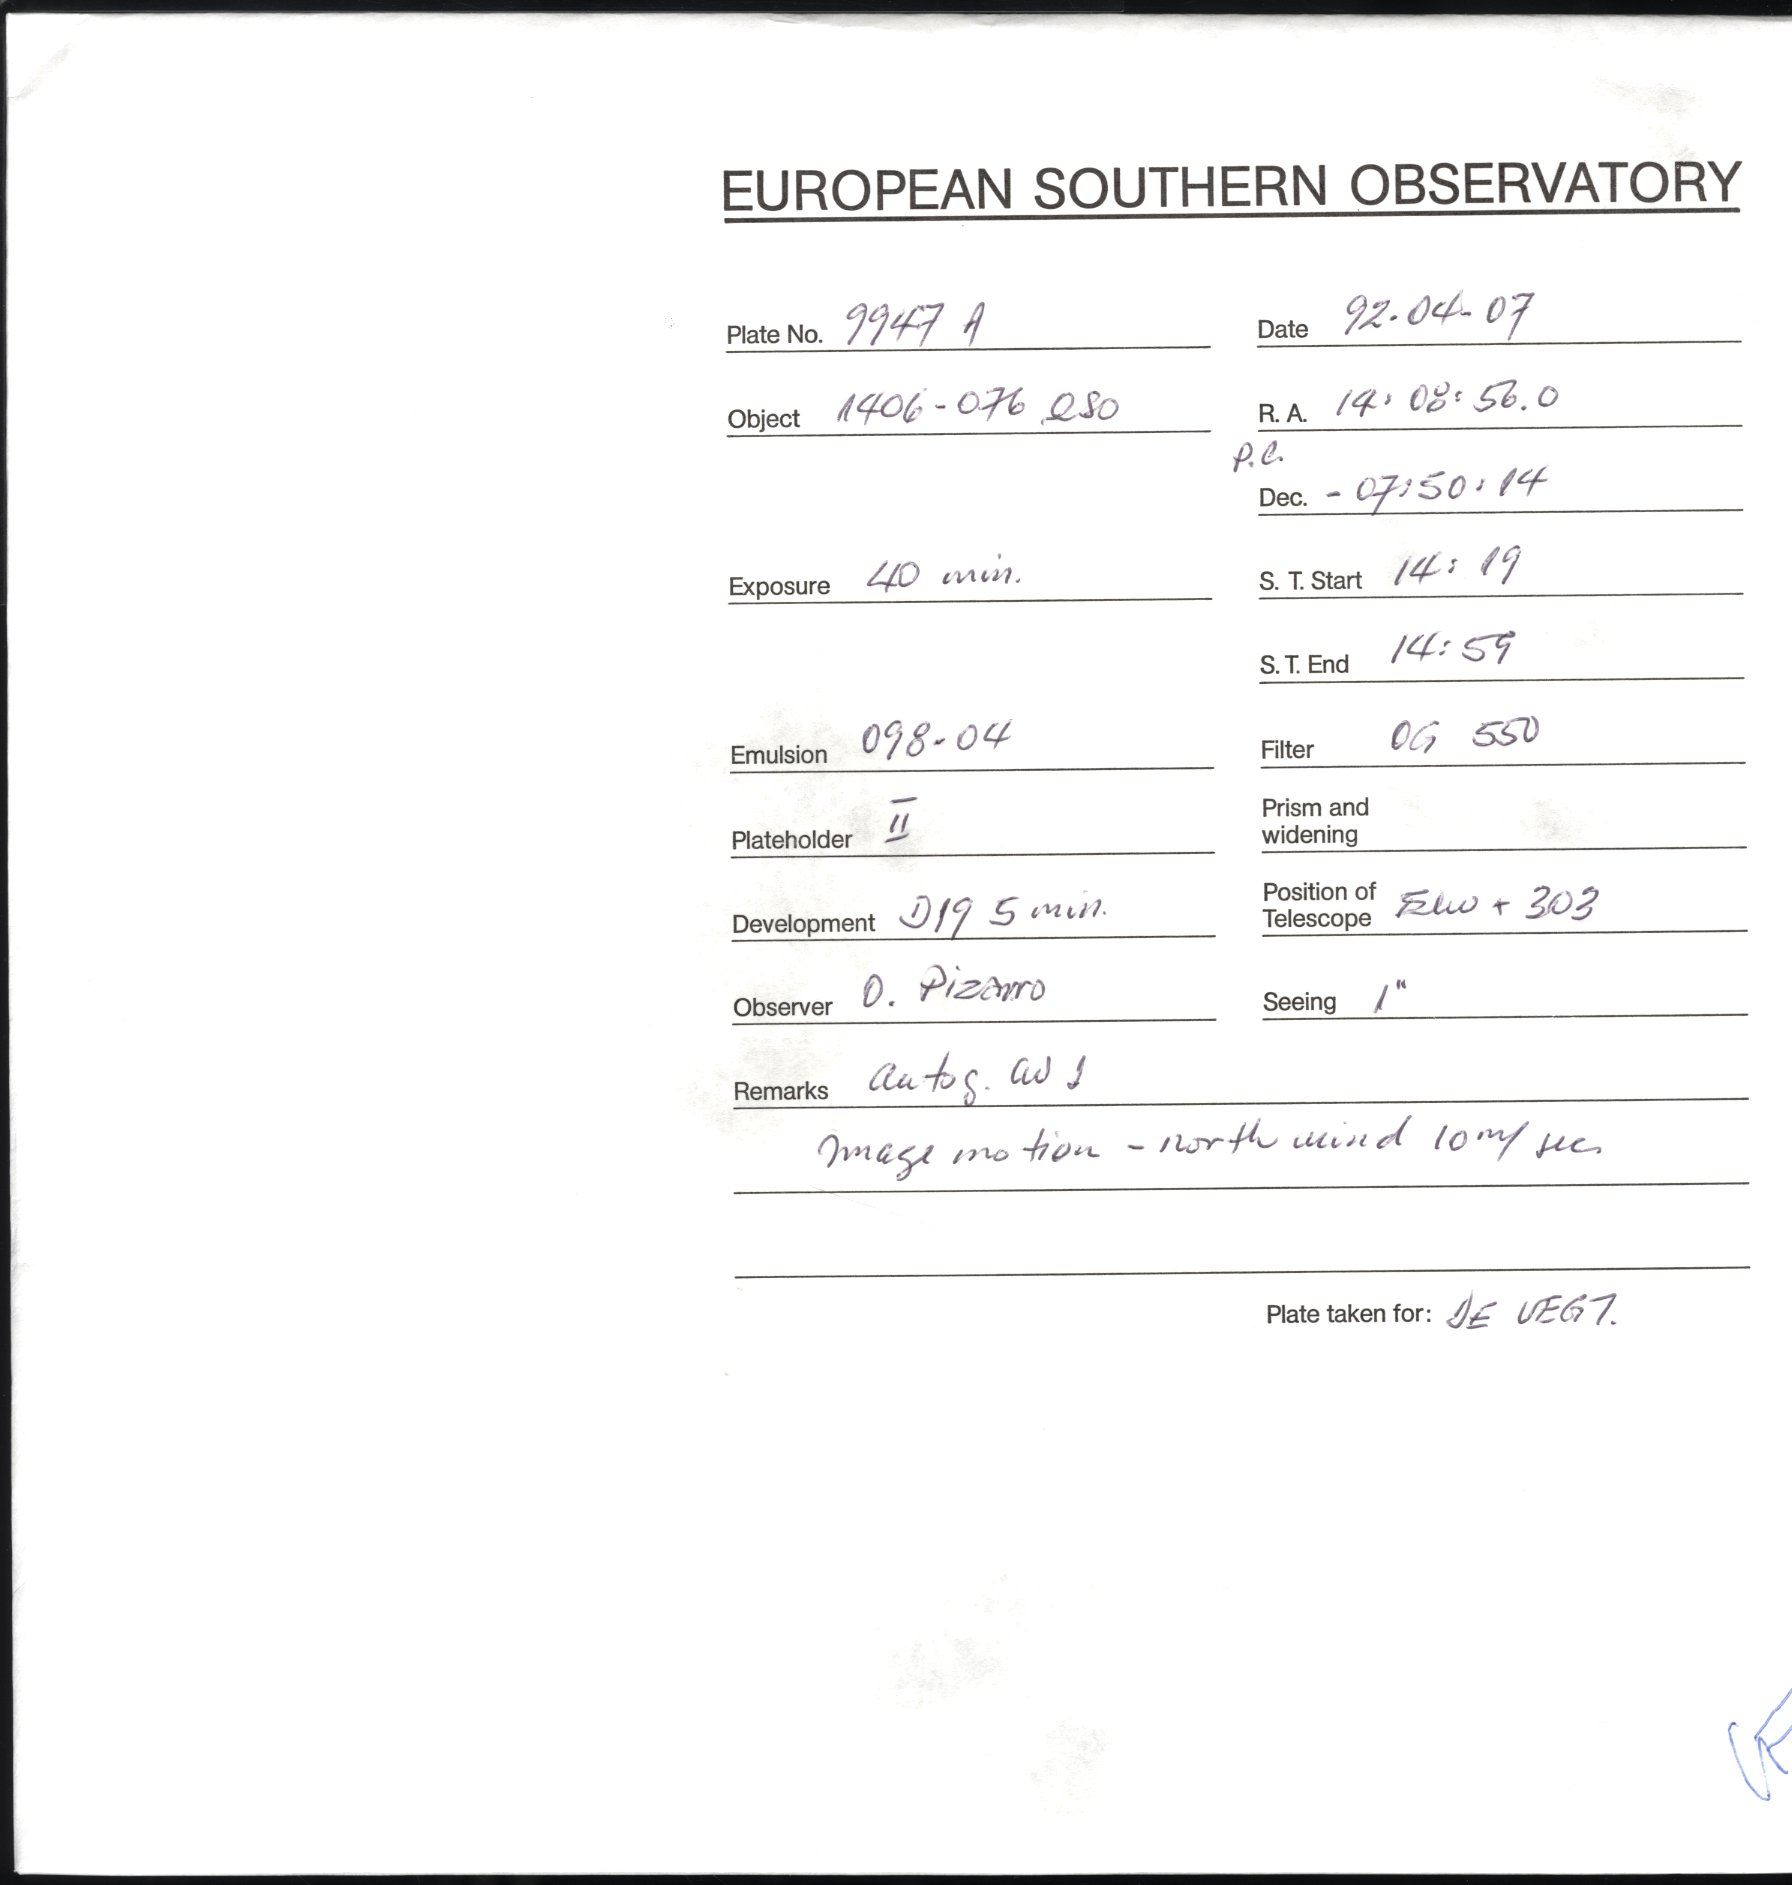 EUROPEAN SOUTHERN OBSERVATORY
Plate No. 9947 A
Date 92-04-07
Object 1406-076 QSO
R. A. 14: 08: 56.0
P.C.
Dec. - 07:50:14
Exposure 40 min.
S. T. Start 14: 19
S. T. End 14:59
Emulsion 098-04
Filter OG 550
Plateholder II
Prism and
widening
Development D19 5 min.
Position of
Telescope + 303
Observer O. Pizarro
Seeing 1"
Remarks Autog.
Image motion - north wind 10 m/sec
Plate taken for: DE VEGT.